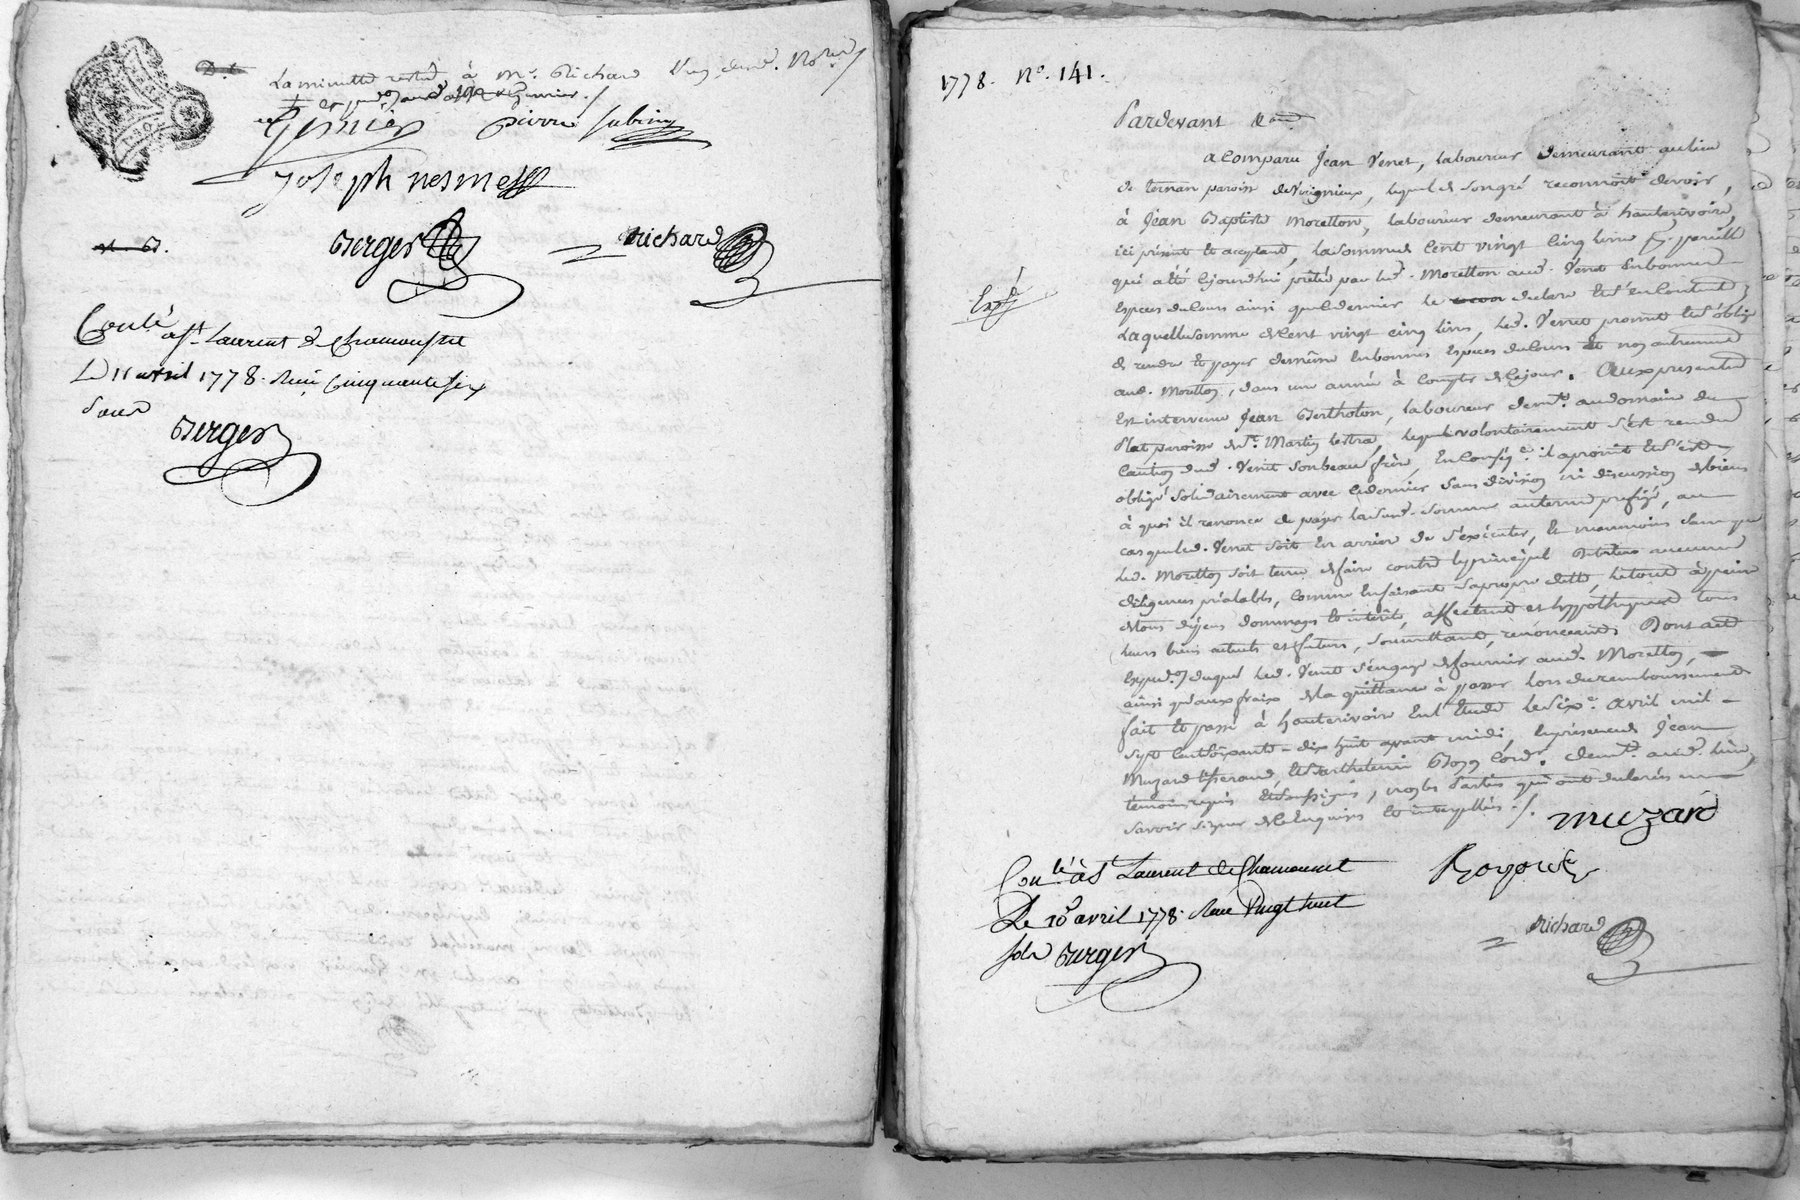 La minutte restée à Me. Richard l'un desd. Nores /
Pierre Subrin
Joseph nesme
Berger Richard
Conlé à St. Laurent de Chamousset
Le 11 avril 1778. Reçu Cinquante six
sous
Berger
1778. No. 141.
Pardevant
a Comparu Jean Venet, laboureur demeurant au lieu
de ternan paroisse de lequel de son gré reconnoit devoir,
à Jean Baptiste Moretton, laboureur demeurant à hauterivoire,
ici présent et acceptant, la somme de Cent vingt cinq livres pareille
qui a été cejourd'hui prêtée par led. Moretton aud. Venet en bonnes
Expée
espèces du Cours ainsi que le dernier le declare et s'en Contente,
Laquelle somme de Cent vingt cinq livres, led. Venet promet et s'oblige
de rendre et payer de même en bonnes espèces de Cours et non autrement
aud. Moretton, dans une année à Compter de ce jour. Aux presentes
Est intervenu Jean Bertholon, laboureur demt. au domaine du
Plat paroisse de St. Martin lestra, lequel volontairement s'est rendu
Caution dud. Venet son beau frère, En Conséqe. il a promit et s'est
obligé solidairement avec ce dernier sans division ni discussion de biens
à quoi il renonce de payer lasusd. somme au terme prefigé, au
cas que led. Venet soit en arriere de s'exécuter, et neanmoins sans que
led. Moretton soit tenu de faire contre le principal débiteur aucunes
diligences préalables, comme en faisant sa propre dette, le tout à peine
de tous dépens dommages et intérêts, affectant et hypothequant tous
leurs biens actuels et futurs, soumettant, renonceant, Dont acte
Expedon. duquel led. Venet s'engage de fournir aud. Moretton,
ainsi qu'aux fraix de la quittance à passer lors du remboursement
fait et passé à hauterivoire en l'Etude le six e. avril mil
sept cent soixante-dix huit avant midi, en présence de Jean
Muzard et Barthelemi Cord. demt. aud. lieu,
temoins requis et soussignés, non les Parties qui ont declarés ne
savoir signer de ce Enquises et interpellées ./.
Muzard
Conlé à St Laurent de Chamousset
Le 10 avril 1778. Reçu Vingt huit
sols Berger
Richard